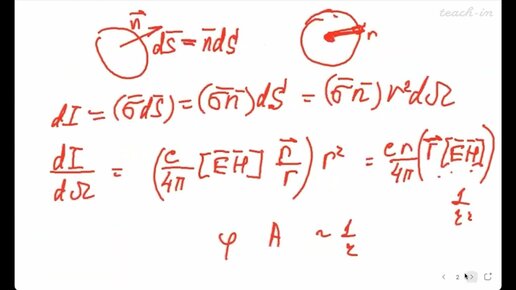 teach-in
n⃗
dS̄ = n̄dS
r
dI = (σ̄dS̄) = (σ̄n̄)dS = (σ̄n̄)r²dΩ
dI/dΩ = (c/4π [ĒH̄] n⃗/r) r² = cr/4π (r⃗[ĒH̄])
1/r²
φ A ~ 1/r
2